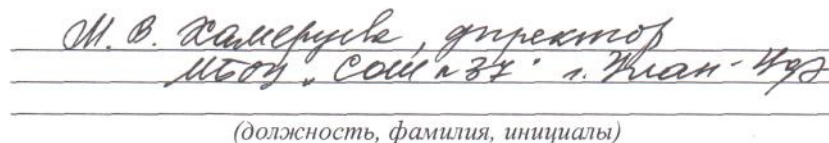 М. В. Хамеруева, директор
МБОУ "СОШ №37" г. Улан-Удэ
(должность, фамилия, инициалы)